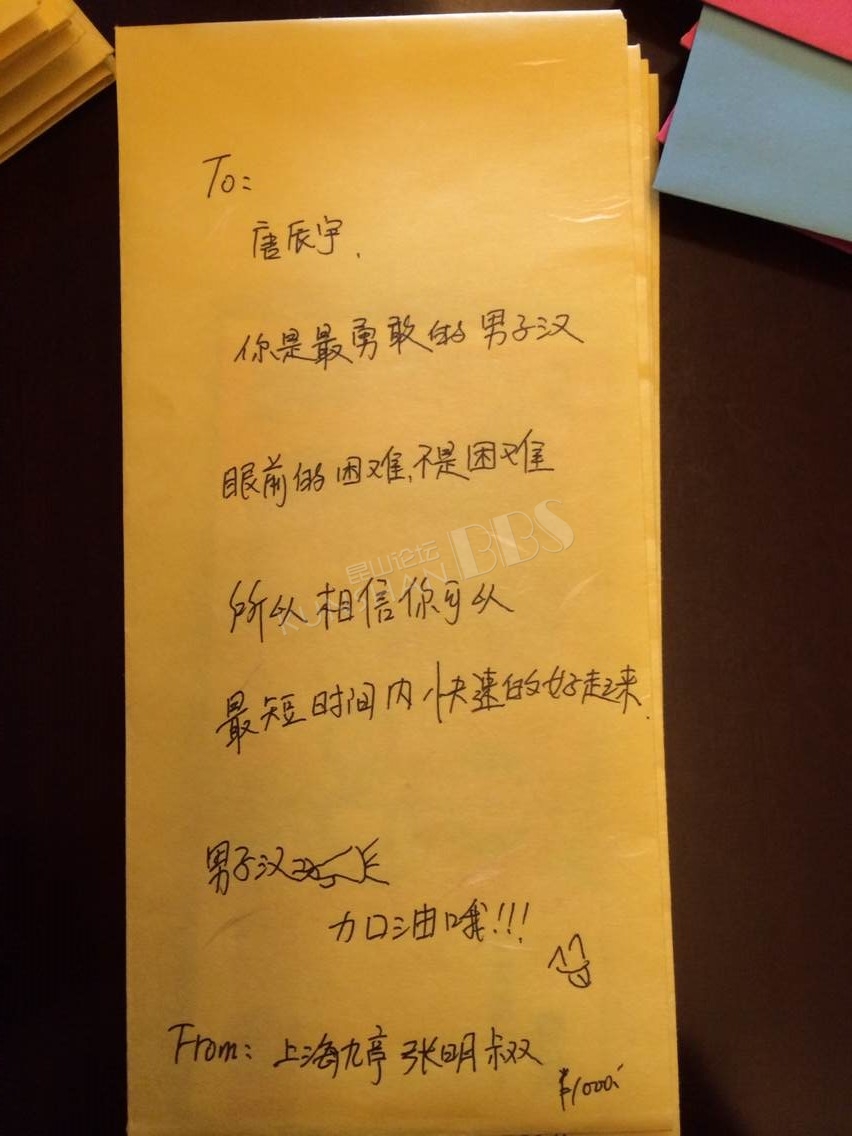 To:
唐辰宇,
你是最勇敢的男子汉
眼前的困难,不是困难
昆山论坛 BBS
KUNSHAN
所以相信你可以
最短时间内快速的好起来.
男子汉
加油哦!!!
From: 上海九亭 张明叔叔
¥1000